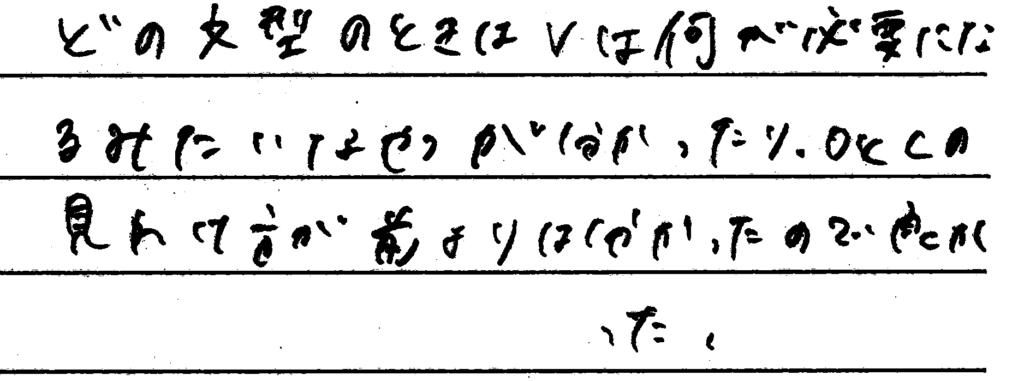 どの文型のときはVは何が必要にな
るみたいなやつが分かったり、OとCの
見わけ方が前よりは分かったので良か
った。